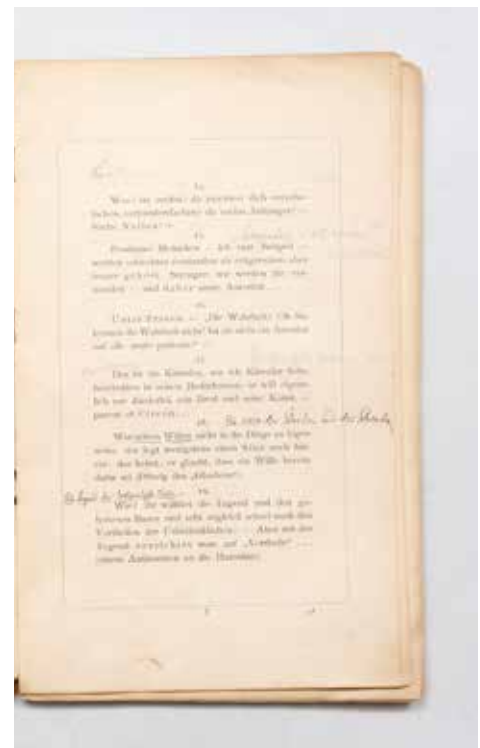 14.
Was? du suchst? du möchtest dich verzehn-
fachen, verhundertfachen? du suchst Anhänger? —
Suche Nullen! —
15.
Posthume Menschen — ich zum Beispiel —
werden schlechter verstanden als zeitgemässe, aber
besser gehört. Strenger: wir werden nie ver-
standen — und daher unsre Autorität...
16.
Unter Frauen. — „Die Wahrheit? Oh Sie
kennen die Wahrheit nicht! Ist sie nicht ein Attentat
auf alle unsre pudeurs?“ —
17.
Das ist ein Künstler, wie ich Künstler liebe,
bescheiden in seinen Bedürfnissen: er will eigent-
lich nur Zweierlei, sein Brod und seine Kunst, —
panem et Circen...
18.
Wer seinen Willen nicht in die Dinge zu legen
weiss, der legt wenigstens einen Sinn noch hin-
ein: das heisst, er glaubt, dass ein Wille bereits
darin sei (Princip des „Glaubens“).
19.
Wie? ihr wähltet die Tugend und den ge-
hobenen Busen und seht zugleich scheel nach den
Vortheilen der Unbedenklichen? — Aber mit der
Tugend verzichtet man auf „Vortheile“ ...
(einem Antisemiten an die Hausthür.)